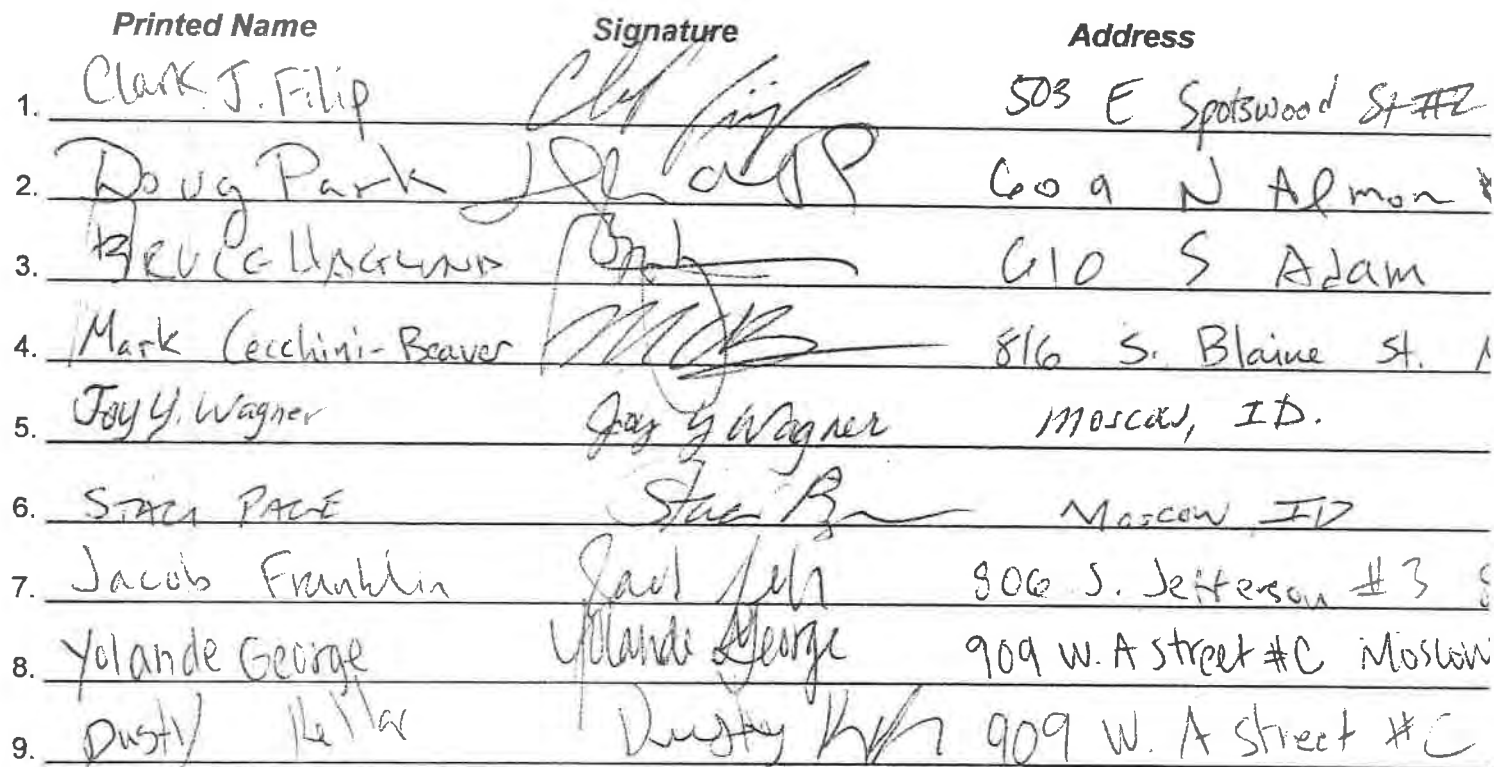 Printed Name Signature Address
1. Clark J. Filip 503 E Spotswood St #2
2. Doug Park 609 N Almon
3. Bruce Haglund 610 S Adam
4. Mark Cecchini-Beaver 816 S. Blaine St.
5. Joy Y. Wagner Joy Y Wagner Moscow, ID.
6. Staci Page Staci Moscow ID
7. Jacob Franklin 806 S. Jefferson #3
8. Yolande George Yolande George 909 W. A Street #C Moscow
9. Dusty Dusty 909 W. A Street #C